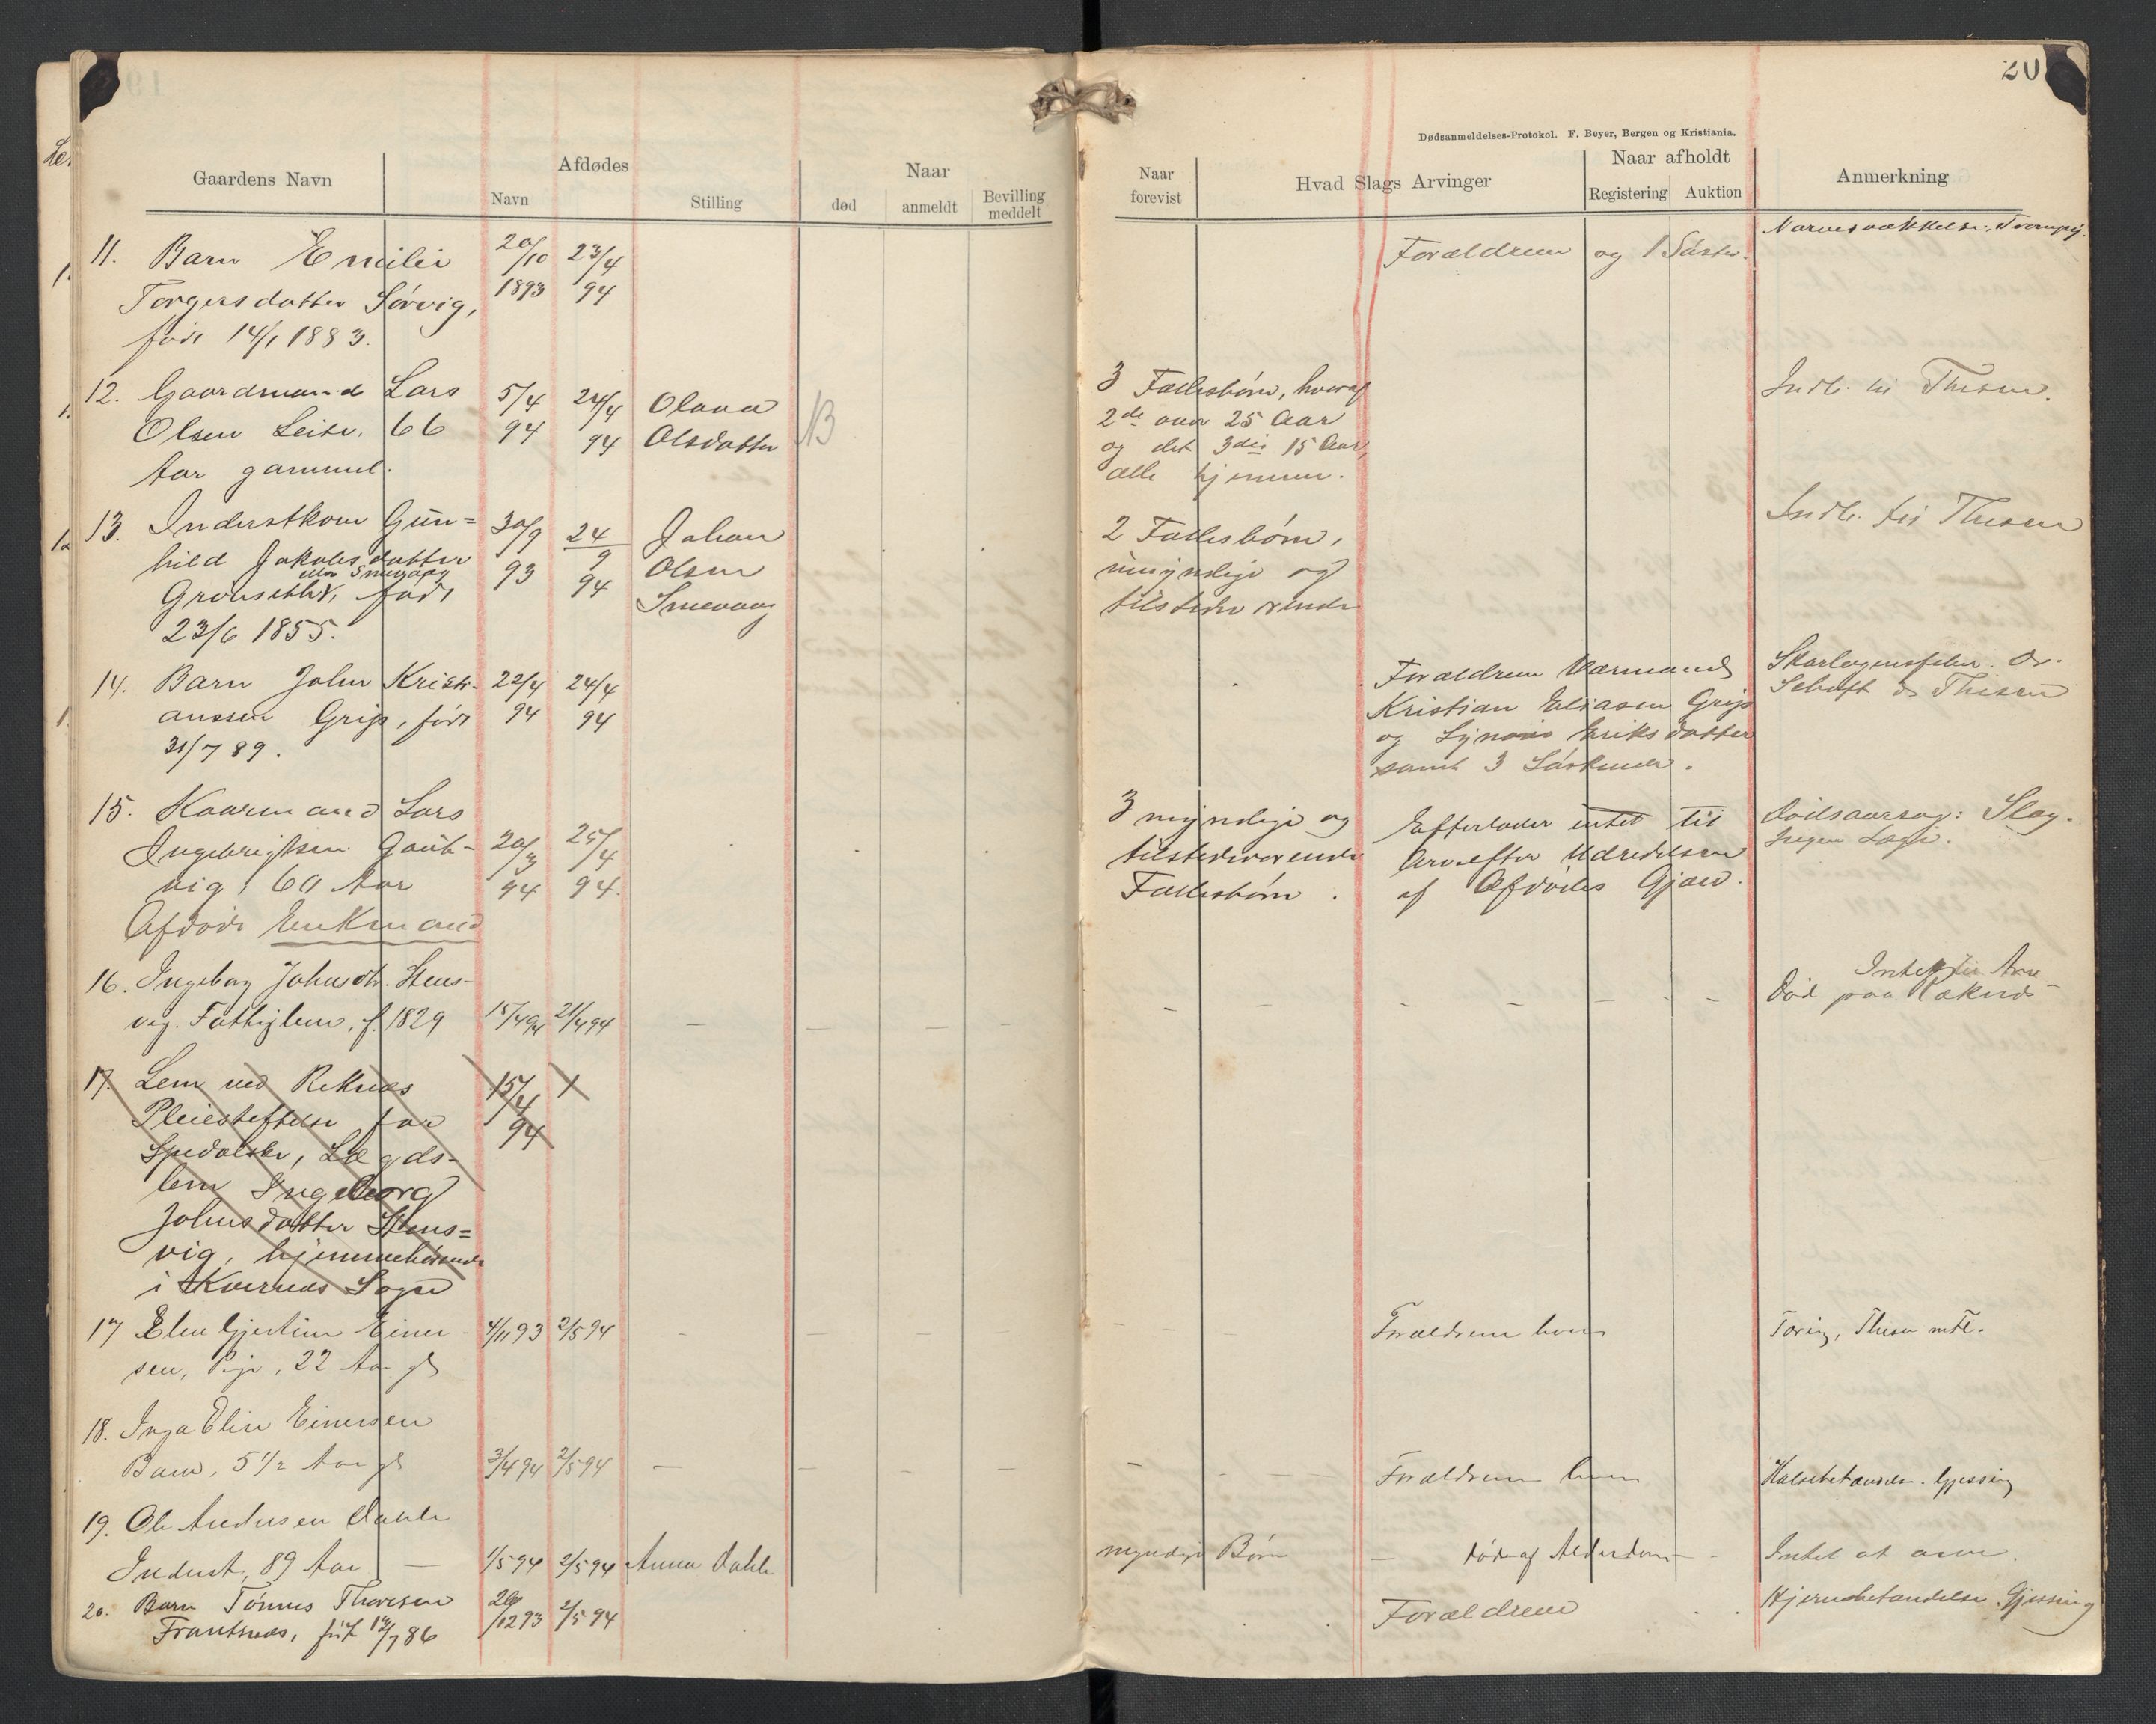 20
Dødsanmeldelses-Protokol. F. Beyer, Bergen og Kristiania.
Gaardens Navn
Afdødes
Navn
Stilling
Naar
død
anmeldt
Bevilling
meddelt
Naar
forevist
Hvad Slags Arvinger
Naar afholdt
Registering
Auktion
Anmerkning
11. Barn Emilie 20/10 23/4 Forældrene og 1 Søster.
Torgersdatter Sørvig, 1893 94
født 14/1 1883.
12. Gaardmand Lars 5/4 24/4 Olava 3 Fællesbørn, hvoraf
Olsen Leite, 66 94 94 Olsdatter 2de over 25 Aar
Aar gammel. og det 3die 15 Aar,
alle hjemme.
Indb. til Thesen.
13. Inderstkone Gun= 30/9 24/9 Johan 2 Fællesbørn, Indb. til Thesen
hild Jakobsdatter 93 94 Olsen umyndige og
eller Smevaag
Grønseth, født Smevaag tilstedeværende
23/6 1855.
14. Barn John Kristi- 22/4 24/4 Forældrene
anssen Grip, født 94 94 Kristian Eliasen Grip
31/7 89. og Synnøve Eriksdatter
samt 3 Søskende.
Skarlagensfeber. Dr.
Schøft Thesen
15. Kaarmand Lars 3 myndige og Efterlader intet til Dødsaarsag: Slag.
Ingebrigtsen Gaut- 20/3 25/4 tilstedeværende Arv efter Udredelsen Ingen Læge.
vig, 60 Aar 94 94. Fællesbørn. af Afdødes Gjæld.
Afdøde Enkemand
16. Ingeborg Johnsdtr. Stens- Intet til Arv
vig. Fattiglem, f. 1829 15/4 94 21/4 94 — — — — Død paa Reknes
17. Lem ved Reknes 15/4 94
Pleiestiftelse for
Spedalske, Lægds-
lem Ingeborg
Johnsdatter Stens=
vig, hjemmehørende
i Kvernes Sogn
17 Elen Gjertine Einer- 4/11 93 2/5 94 Forældrene Tæring, Thesen
sen, Pige, 22 Aar gl
18. Inga Elise Einersen
Barn, 5 1/2 Aar gl 3/4 94 2/5 94 — Forældrene Halsbetændelse. Gjessing
19. Ole Andersen Dahle
Inderst, 89 Aar — 1/5 94 2/5 94 Anna Dahle myndige Børn — død af Alderdom — Intet at arve.
20. Barn Tønnes Thoresen 26/12 93 2/5 94 Forældrene Hjernebetændelse. Gjessing
Frantsnes, født 12/7 86